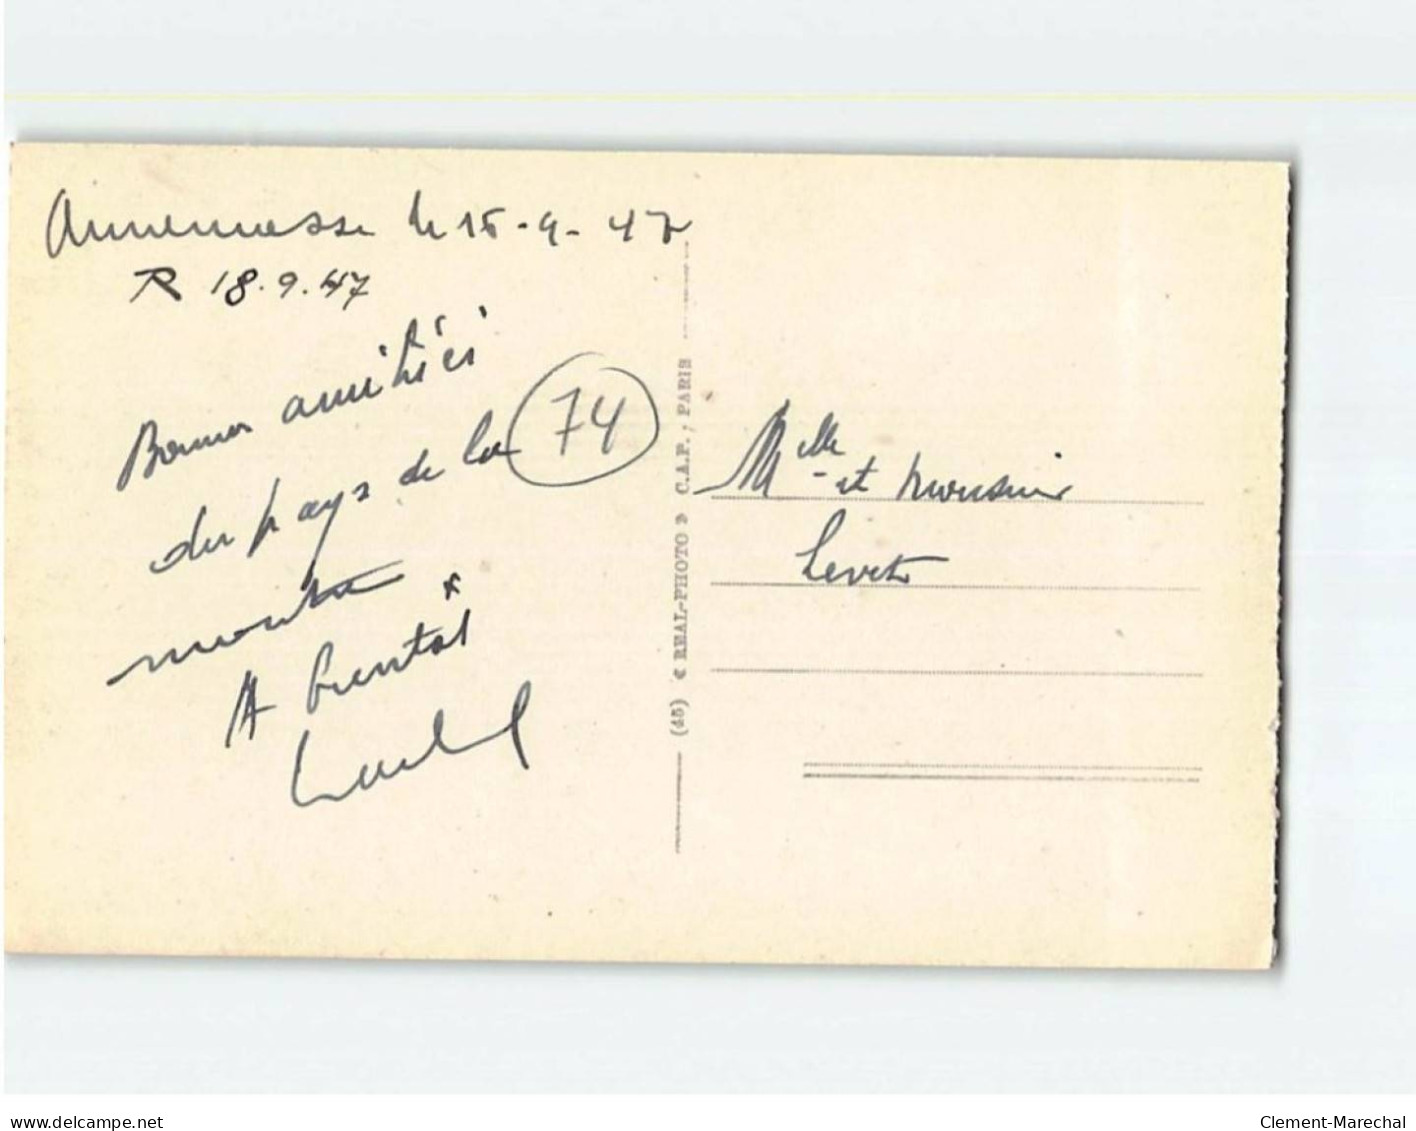 Annemasse le 15-9-47
R 18.9.47
Bonnes amitiés
du pays de la
74
montre
A bientôt
(45) « REAL-PHOTO » C.A.P., PARIS
Mlle et Monsieur
delcampe.net
Clement-Marechal